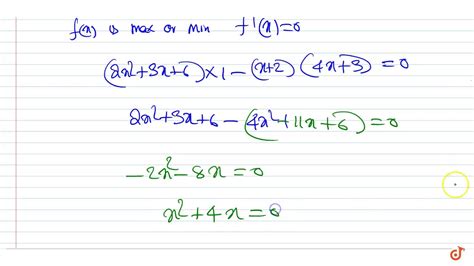 f(x) is max or min f'(x)=0
(2x²+3x+6)×1-(x+2)(4x+3)=0
2x²+3x+6-(4x²+11x+6)=0
-2x²-8x=0
x²+4x=0